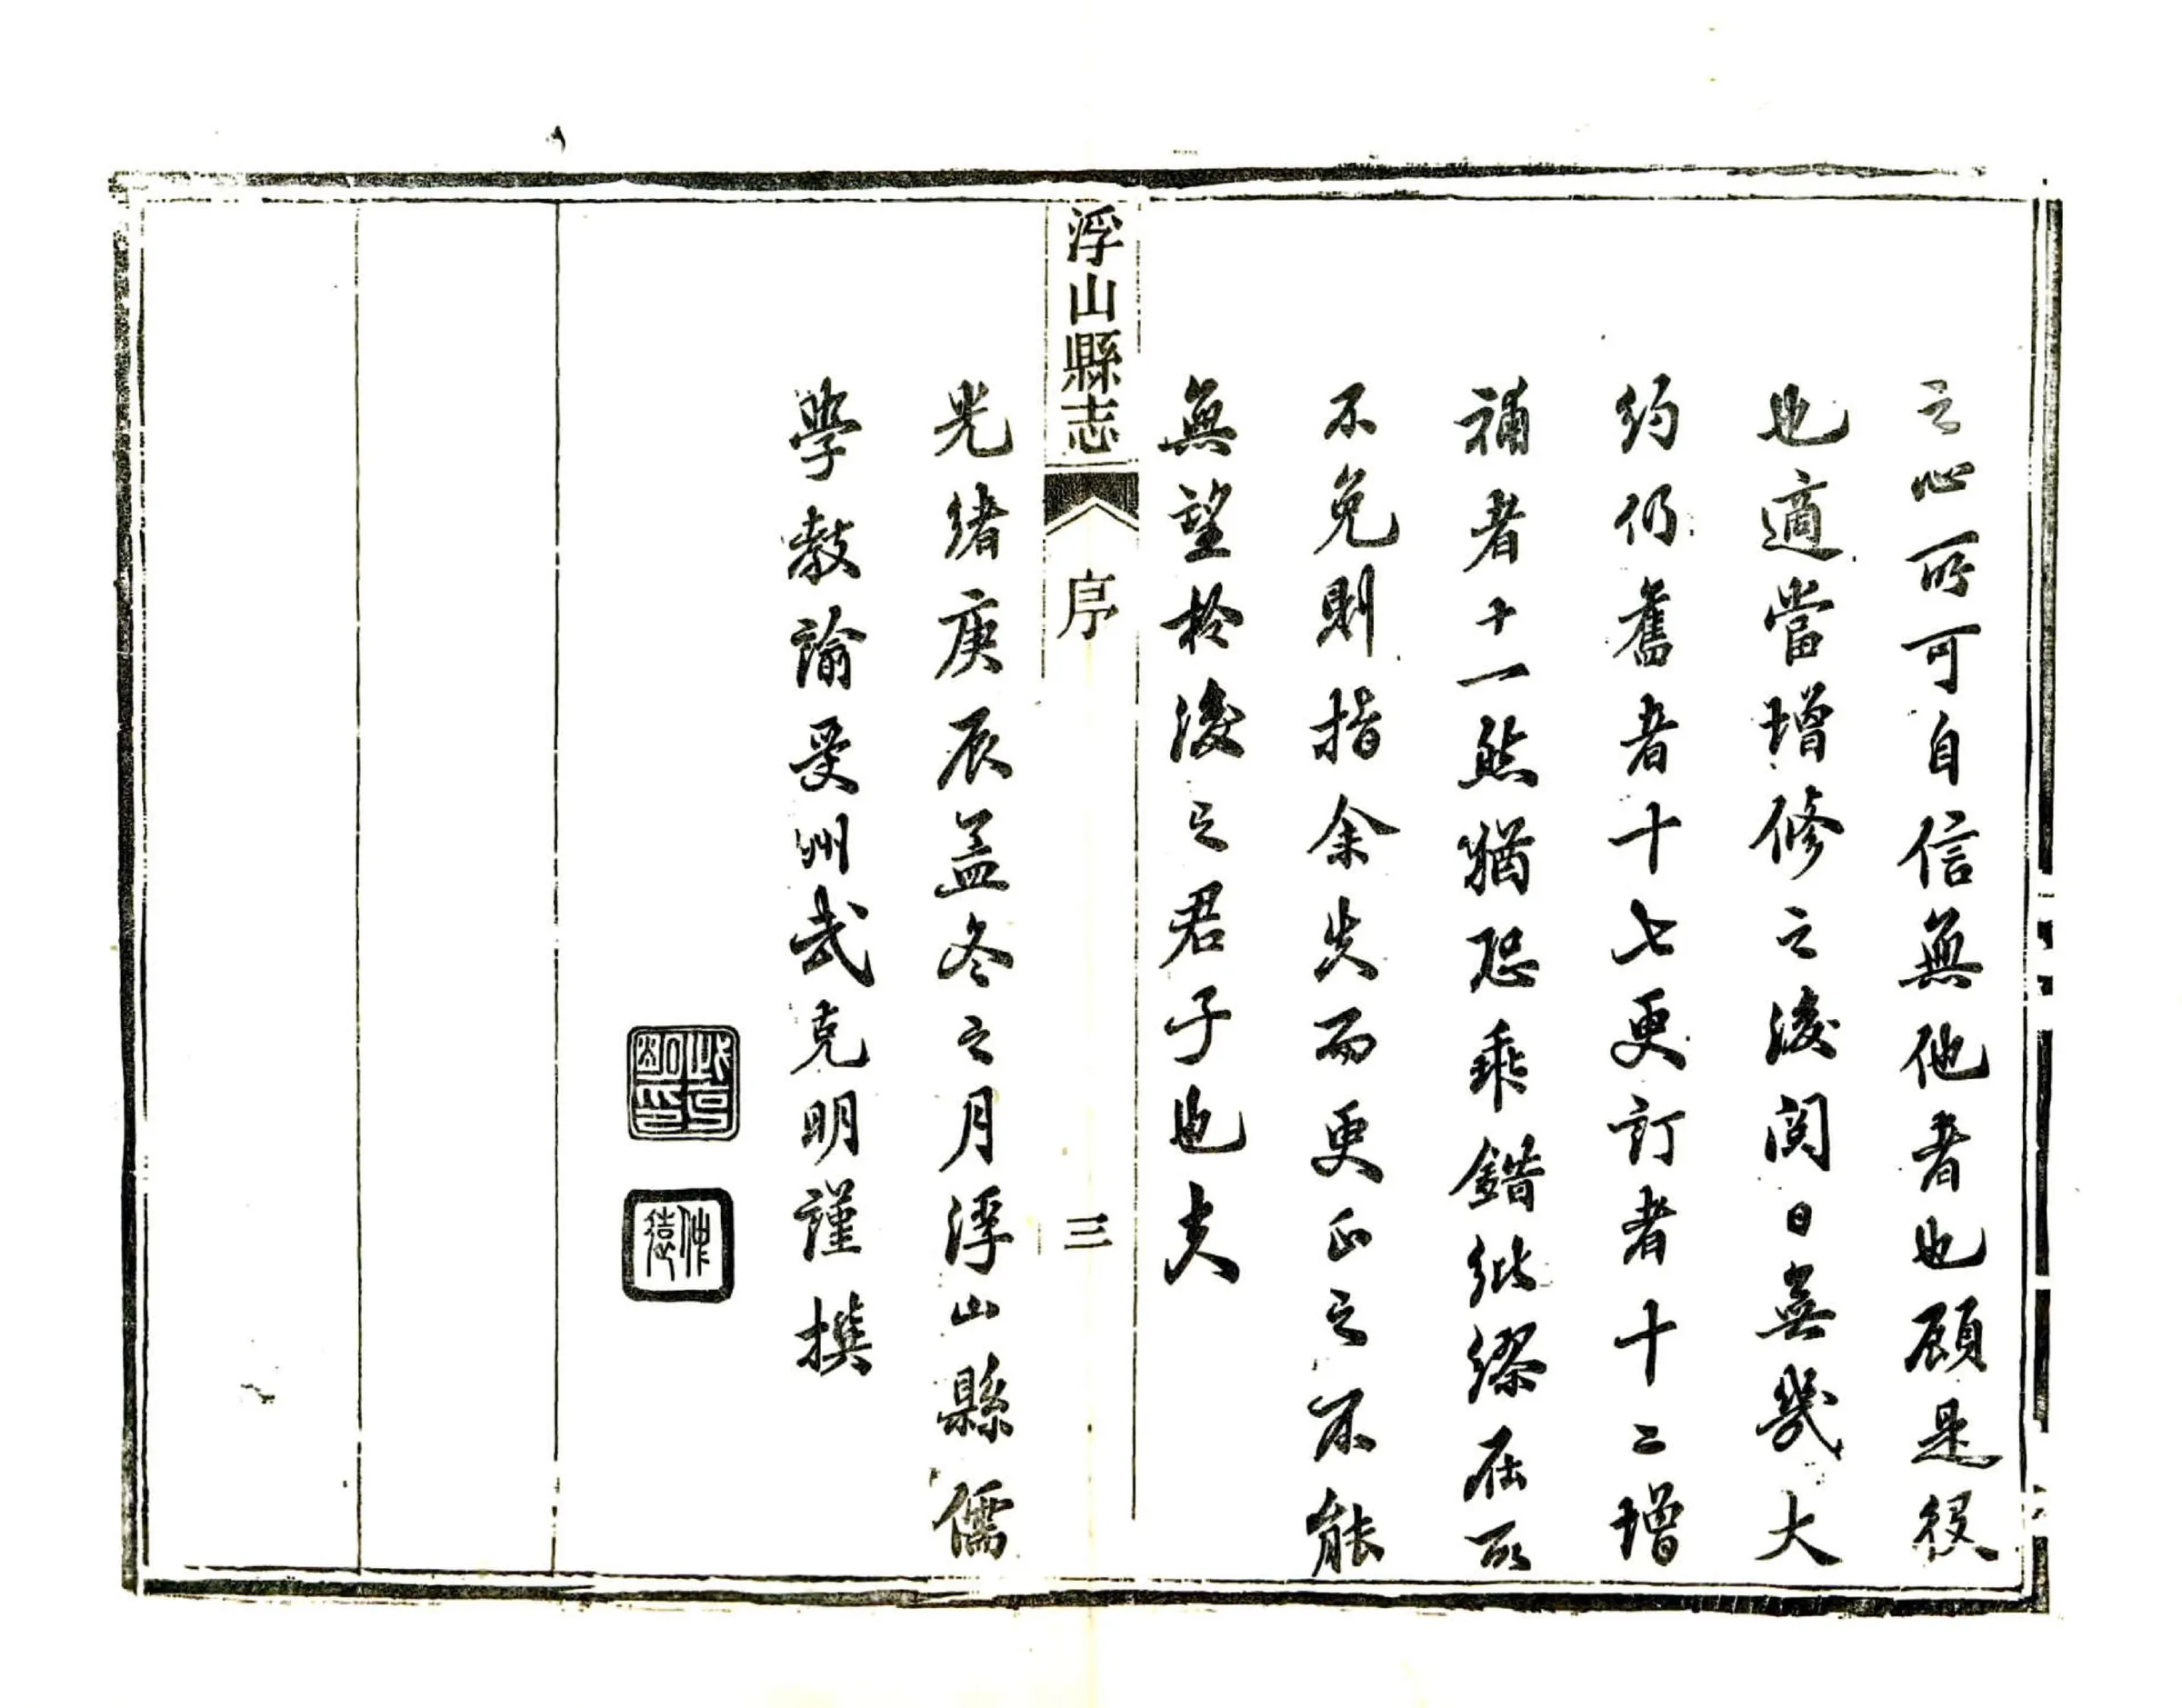 之心所可自信無他者也顧是役
也適當增修之後閱日無幾大
約仍舊者十七更訂者十二增
補者十一然猶恐乖錯紕繆在所
不免則指余失而更正之不能
無望於後之君子也夫
浮山縣志
序
三
光緒庚辰孟冬之月浮山縣儒
學教諭受州武克明謹撰
武克明印